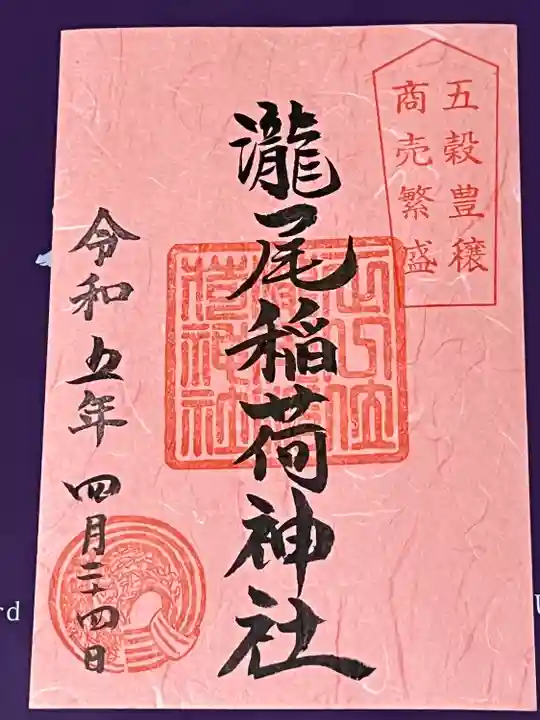 五穀豊穣
商売繁盛
瀧尾稲荷神社
正一位
令和五年 四月二十四日
rd